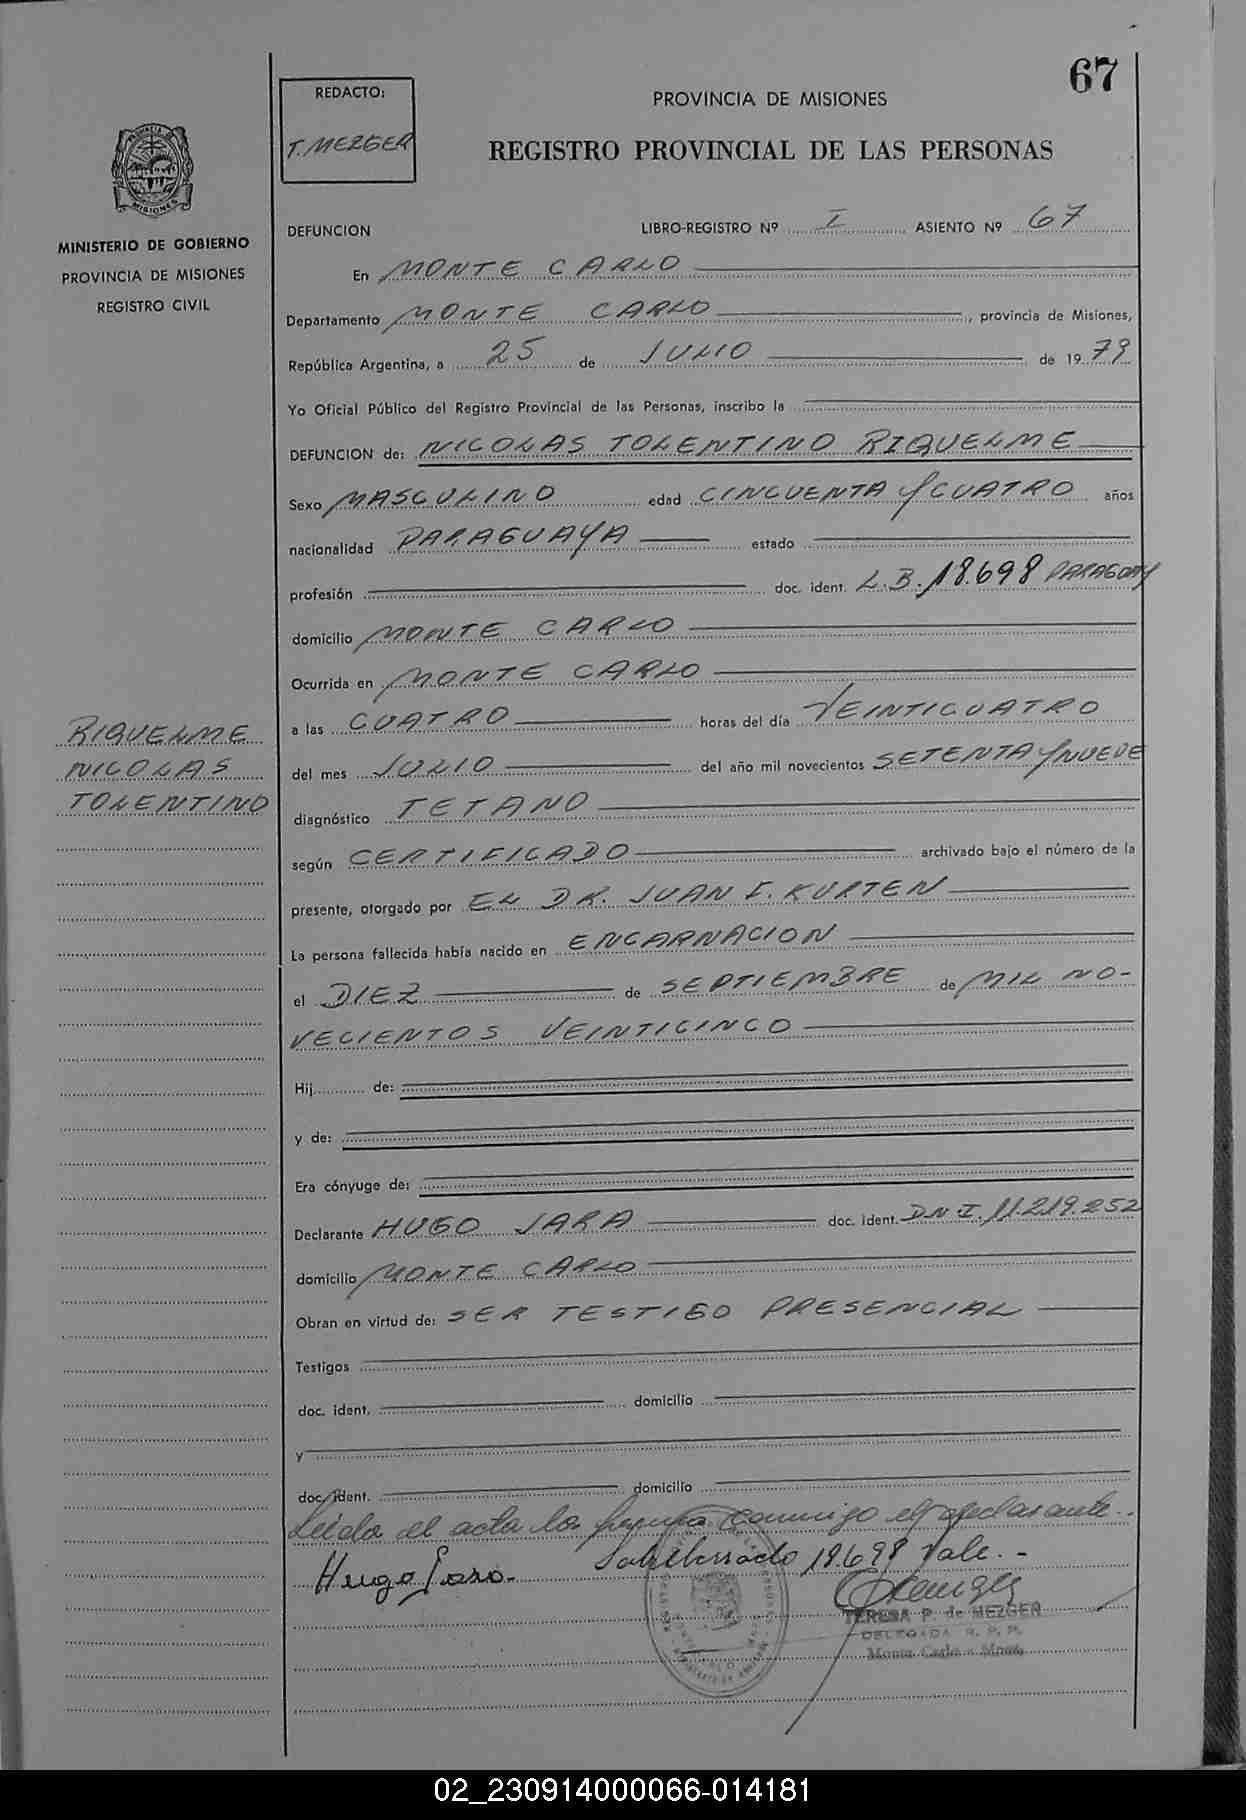 67
REDACTO:
T. MEZGER
PROVINCIA DE MISIONES
REGISTRO PROVINCIAL DE LAS PERSONAS
PROVINCIA DE
MISIONES
MINISTERIO DE GOBIERNO
PROVINCIA DE MISIONES
REGISTRO CIVIL
DEFUNCION LIBRO-REGISTRO Nº I ASIENTO Nº 67
En MONTE CARLO
Departamento MONTE CARLO, provincia de Misiones,
República Argentina, a 25 de JULIO de 1979
Yo Oficial Público del Registro Provincial de las Personas, inscribo la
DEFUNCION de: NICOLAS TOLENTINO RIQUELME
Sexo MASCULINO edad CINCUENTA Y CUATRO años
nacionalidad PARAGUAYA estado
profesión doc. ident. L.B. 18.698 PARAGUAY
domicilio MONTE CARLO
Ocurrida en MONTE CARLO
a las CUATRO horas del día VEINTICUATRO
del mes JULIO del año mil novecientos SETENTA Y NUEVE
diagnóstico TETANO
según CERTIFICADO archivado bajo el número de la
presente, otorgado por EL DR. JUAN F. KURTEN
La persona fallecida había nacido en ENCARNACION
el DIEZ de SEPTIEMBRE de MIL NO-
VECIENTOS VEINTICINCO
Hij de:
y de:
Era cónyuge de:
Declarante HUGO JARA doc. ident. DNI. 11.219.252
domicilio MONTE CARLO
Obran en virtud de: SER TESTIGO PRESENCIAL
Testigos
doc. ident. domicilio
y
doc. ident. domicilio
Leida el acta la firma conmigo el declarante.
Sobreborrado 18.698 Vale. -
Hugo Jara.-
TERESA P. de MEZGER
DELEGADA R. P. P.
Monte Carlo - Mnes.
RIQUELME
NICOLAS
TOLENTINO
02_230914000066-014181